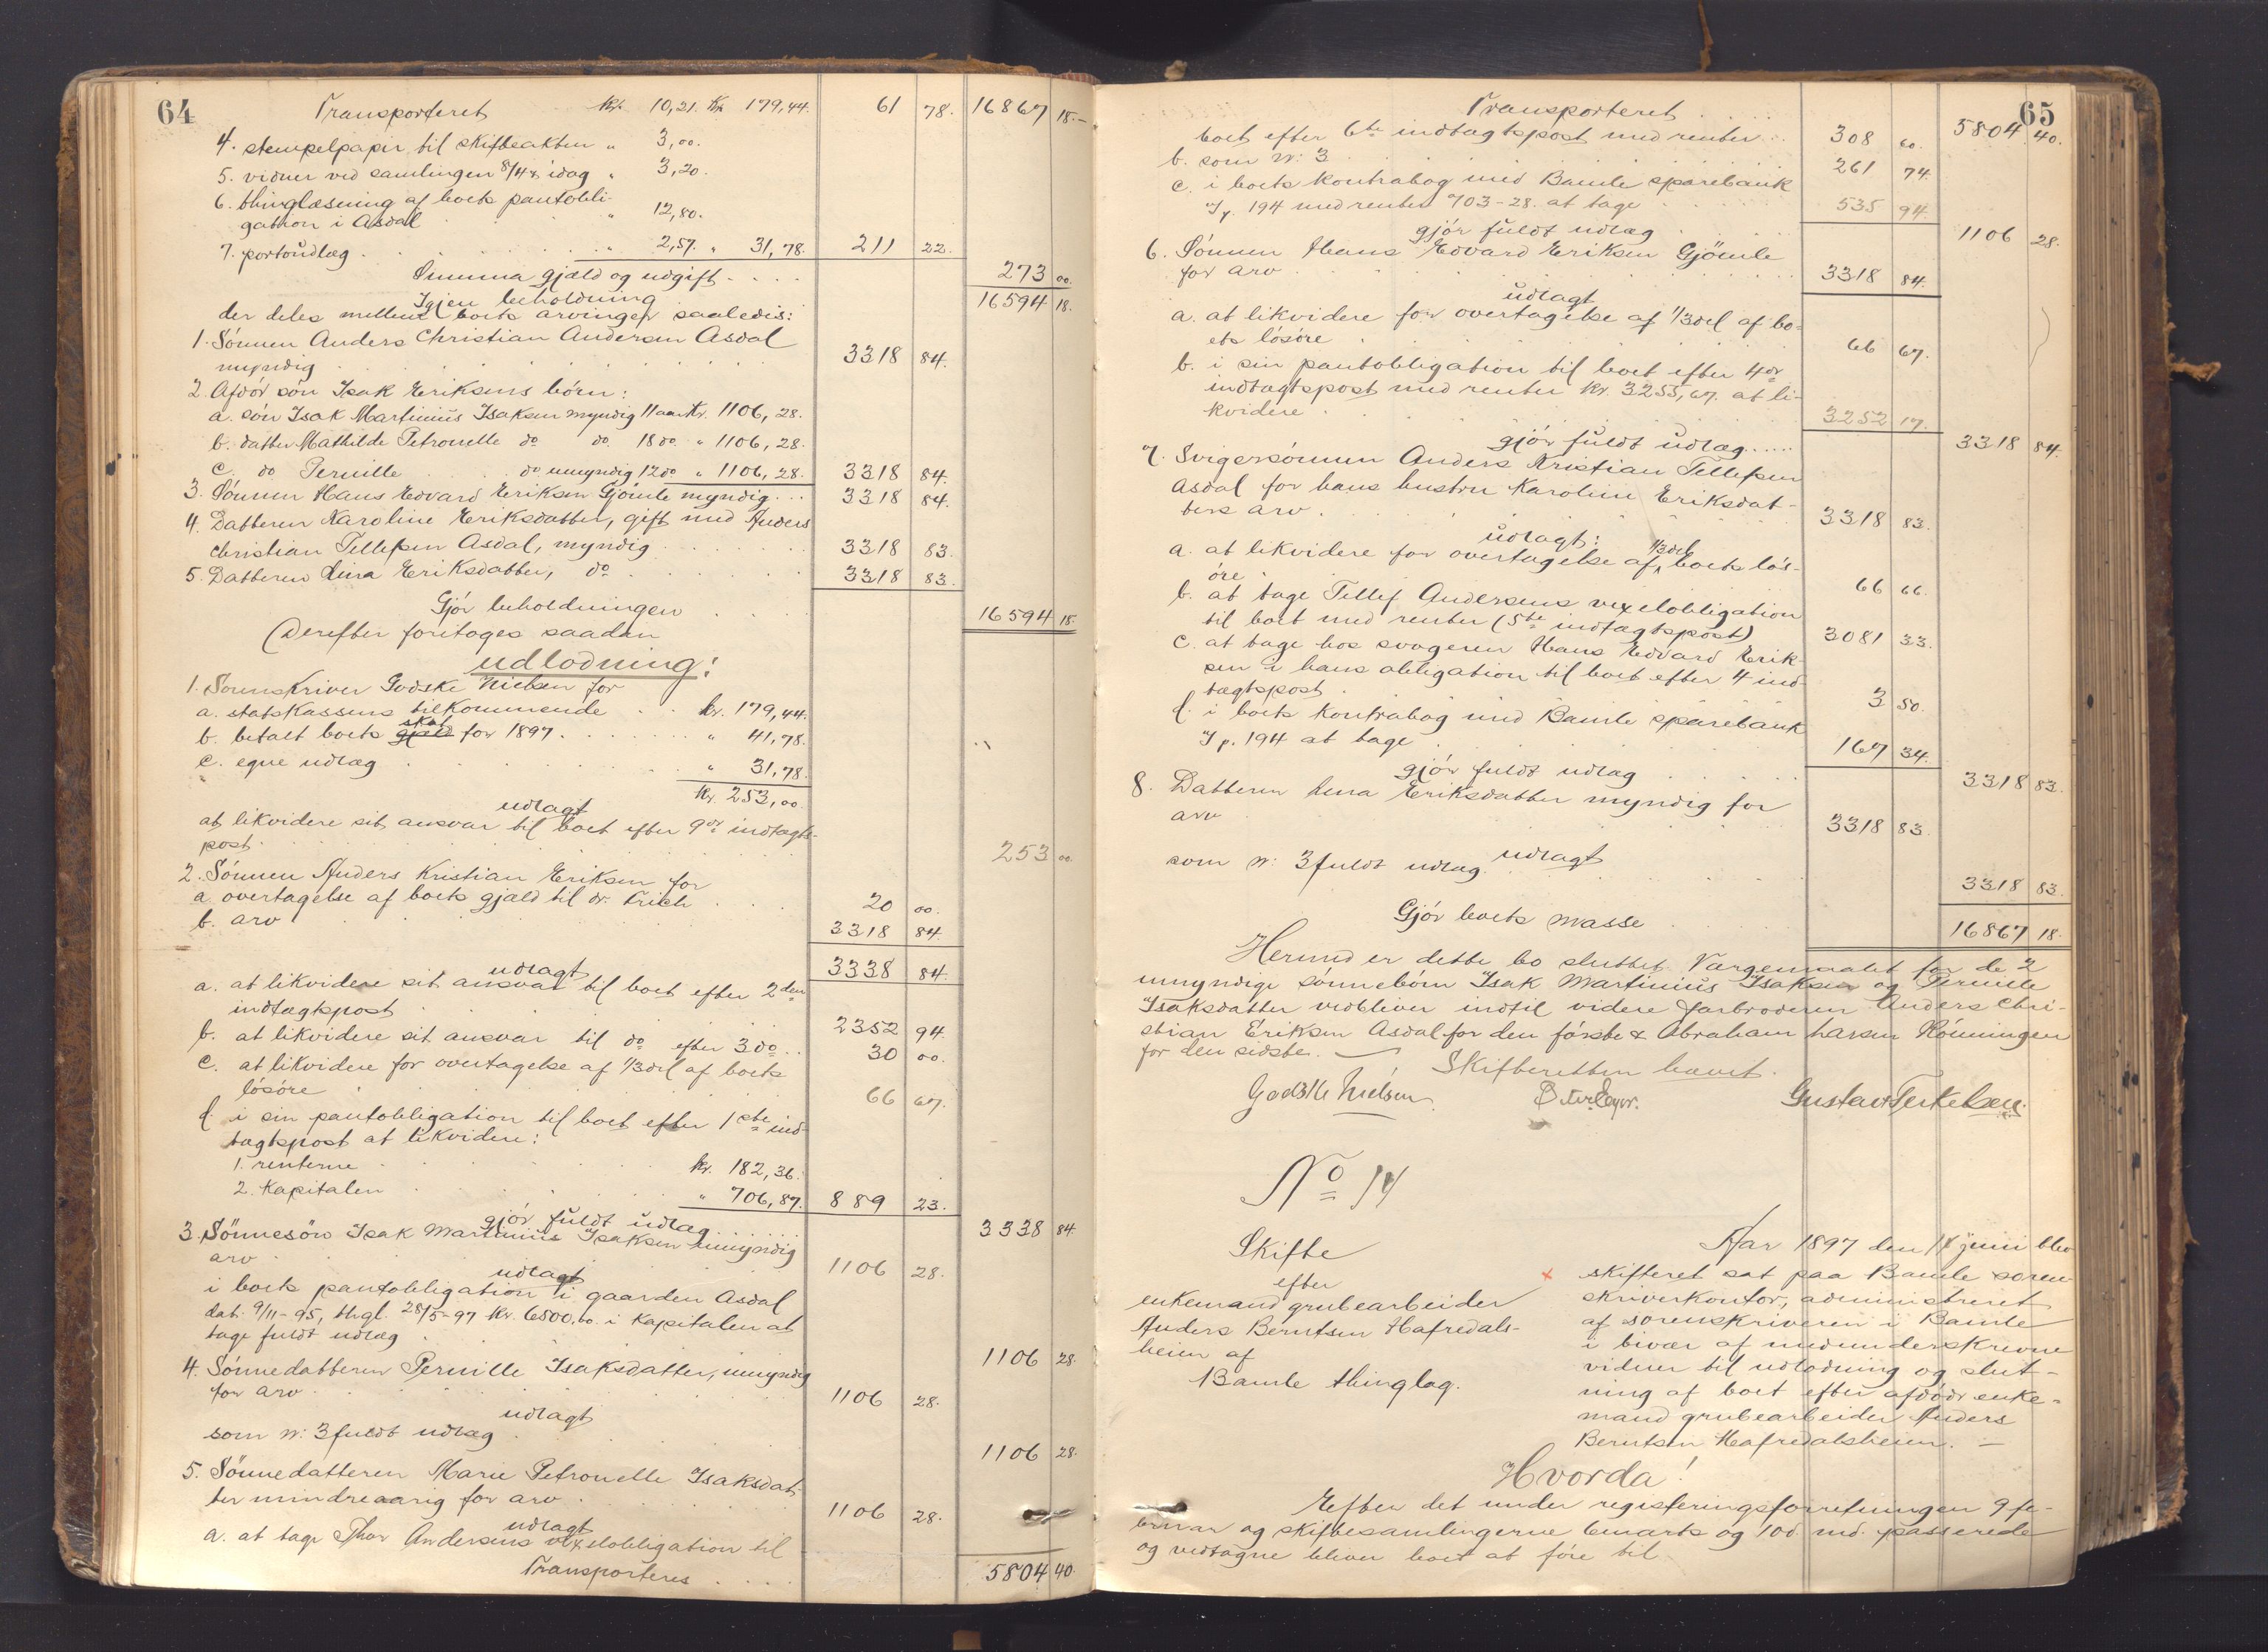 64
Transporteret Kr. 10,21. Kr. 179,44. 61 78. 16867 18.-
4. stempelpapir til skifteakten „ 3,00.
5. vidner ved samlingen 8/4 & idag „ 3,20.
6. thinglæsning af boets pantobli-
gation i Asdal „ 12,80.
7. portoudlæg „ 2,57. „ 31,78. 211 22.
Summa gjæld og udgift 273 00.
Igjen beholdning 16594 18.
der deles mellem boets arvinger saaledes:
1. Sønnen Anders Christian Andersen Asdal
myndig 3318 84.
2. Afdød søn Isak Eriksens børn:
a. søn Isak Martinius Isaksen myndig 11 aar Kr. 1106,28.
b. datter Mathilde Petronelle do do. 18 do. „ 1106,28.
c. do Pernille do umyndig 12 do „ 1106,28. 3318 84.
3. Sønnen Hans Edvard Eriksen Gjömle myndig 3318 84.
4. Datteren Karoline Eriksdatter, gift med Anders
Christian Tellefsen Asdal, myndig 3318 83.
5. Datteren Lina Eriksdatter, do 3318 83.
Gjør beholdningen 16594 18.
Derefter foretoges saadan
udlodning:
1. Sorenskriver Godske Nielsen for
a. statskassens tilkommende kr. 179,44.
b. betalt boets gjæld skat for 1897. „ 41,78.
c. egne udlæg „ 31,78.
kr. 253,00.
udlagt
at likvidere sit ansvar til boet efter 9de indtægts-
post. 253 00.
2. Sønnen Anders Kristian Eriksen for
a. overtagelse af boets gjæld til dr. Frich 20 00.
b. arv 3318 84.
3338 84.
udlagt
a. at likvidere sit ansvar til boet efter 2den
indtægtspost 2352 94.
b. at likvidere sit ansvar til do efter 3do. 30 00.
c. at likvidere for overtagelse af 1/3del af boets
løsøre 66 67.
d. i sin pantobligation til boet efter 1ste ind-
tægtspost at likvidere:
1. renterne kr. 182,36.
2. Kapitalen „ 706,87. 889 23.
gjør fuldt udlæg 3338 84.
3. Sönnesön Isak Martinius Isaksen umyndig
arv 1106 28.
udlagt
i boets pantobligation i gaarden Asdal
dat. 9/11-95, thgl. 28/5-97 kr. 6500.00. i Kapitalen at
tage fuldt udlæg 1106 28.
4. Sönnedatteren Pernille Isaksdatter, umyndig
for arv 1106 28.
udlagt
som N: 3 fuldt udlæg 1106 28.
5. Sönnedatteren Marie Petronelle Isaksdat-
ter mindreaarig for arv 1106 28.
udlagt
a. at tage Thor Andersens vexelobligation til
Transporteres 5804 40.
65
Transporteret 5804 40.
boet efter 6te indtægtspost med renter 308 60.
b. som N: 3 261 74.
c. i boets Kontrabog med Bamle sparebank
I p. 194 med renter 703-28. at tage 535 94
gjør fuldt udlæg 1106 28.
6. Sønnen Hans Edvard Eriksen Gjömle
for arv 3318 84.
udlagt
a. at likvidere for overtagelse af 1/3del af bo-
ets løsøre 66 67.
b. i sin pantobligation til boet efter 4de
indtægtspost med renter kr. 3255,67. at li-
kvidere 3252 17.
gjør fuldt udlæg 3318 84.
7. Svigersønnen Anders Kristian Tellefsen
Asdal for hans hustru Karoline Eriksdat-
ters arv 3318 83.
udlagt:
a. at likvidere for overtagelse af 1/3del boets løs-
öre 66 66.
b. at tage Tellef Andersens vexelobligation
til boet med renter (5te indtægtspost) 3081 33.
c. at tage hos svogeren Hans Edvard Erik-
sen i hans obligation til boet efter 4 ind-
tægtspost 3 50.
d. i boets Kontrabog med Bamle sparebank
I p. 194 at tage 167 34.
gjør fuldt udlæg 3318 83.
8. Datteren Lina Eriksdatter myndig for
arv 3318 83.
udlagt
som N: 3 fuldt udlæg 3318 83.
Gjør boets masse 16867 18.
Hermed er dette bo sluttet. Værgemaalet for de 2
umyndige sønnebørn Isak Martinius Isaksen og Pernille
Isaksdatter vedbliver indtil videre farbroderen Anders Chri-
stian Eriksen Asdal for den første & Abraham Larsen Rönningen
for den sidste.
Skifteretten hævet.
Godske Nielsen. Gustav Terkelsen.
No 14
Skifte
efter
enkemand grubearbeider
Anders Berntsen Hafredals-
heien af
Bamle thinglag.
Aar 1897 den 14 juni blev
skifteret sat paa Bamle soren-
skriverkontor, administreret
af sorenskriveren i Bamle
i bivær af medunderskrevne
vidner til udlodning og slut-
ning af boet efter afdøde enke-
mand grubearbeider Anders
Berntsen Hafredalsheien. —
Hvorda!
Efter det under registeringsforretningen 9 fe-
bruar og skiftesamlingerne 6 marts og 10 d. md. passerede
og vedtagne bliver boet at føre til